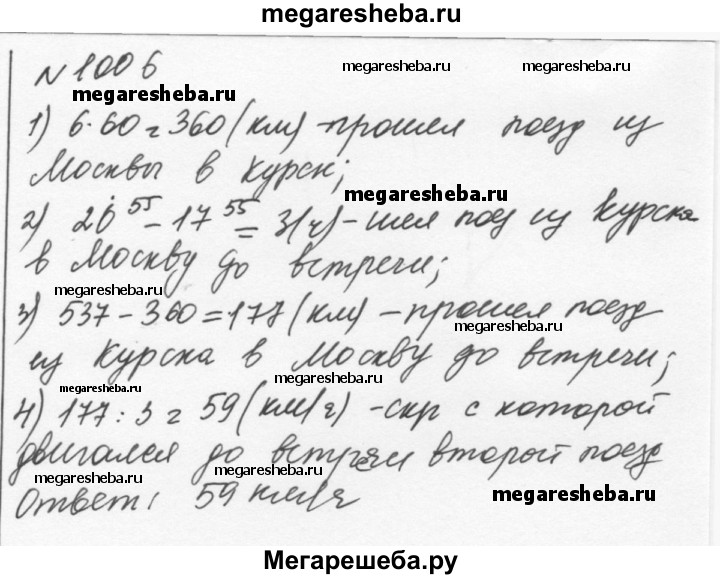 megaresheba.ru
N 1006
megaresheba.ru
megaresheba.ru
megaresheba.ru
1) 6·60 = 360 (км) - прошел поезд из
Москвы в Курск;
megaresheba.ru
2) 20⁵⁵ - 17⁵⁵ = 3(ч) - шел поезд из Курска
в Москву до встречи;
megaresheba.ru
3) 537 - 360 = 177 (км) - прошел поезд
megaresheba.ru
из Курска в Москву до встречи;
megaresheba.ru
megaresheba.ru
4) 177 : 3 = 59 (км/ч) - скр с которой
двигался до встречи второй поезд
megaresheba.ru
megaresheba.ru
Ответ: 59 км/ч
megaresheba.ru
Мегарешеба.ру